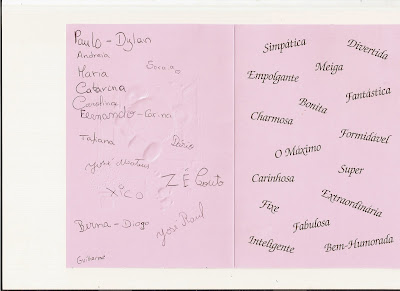 Paulo - Dylan
Andreia
Maria
Catarina
Carolina
Fernando - Carina
Tatiana
José Mateus
Xico
ZÉ Couto
Berna - Diogo
José Raul
Guilherme
Simpática
Divertida
Meiga
Empolgante
Fantástica
Bonita
Charmosa
Formidável
O Máximo
Super
Carinhosa
Extraordinária
Fixe
Fabulosa
Inteligente
Bem-Humorada